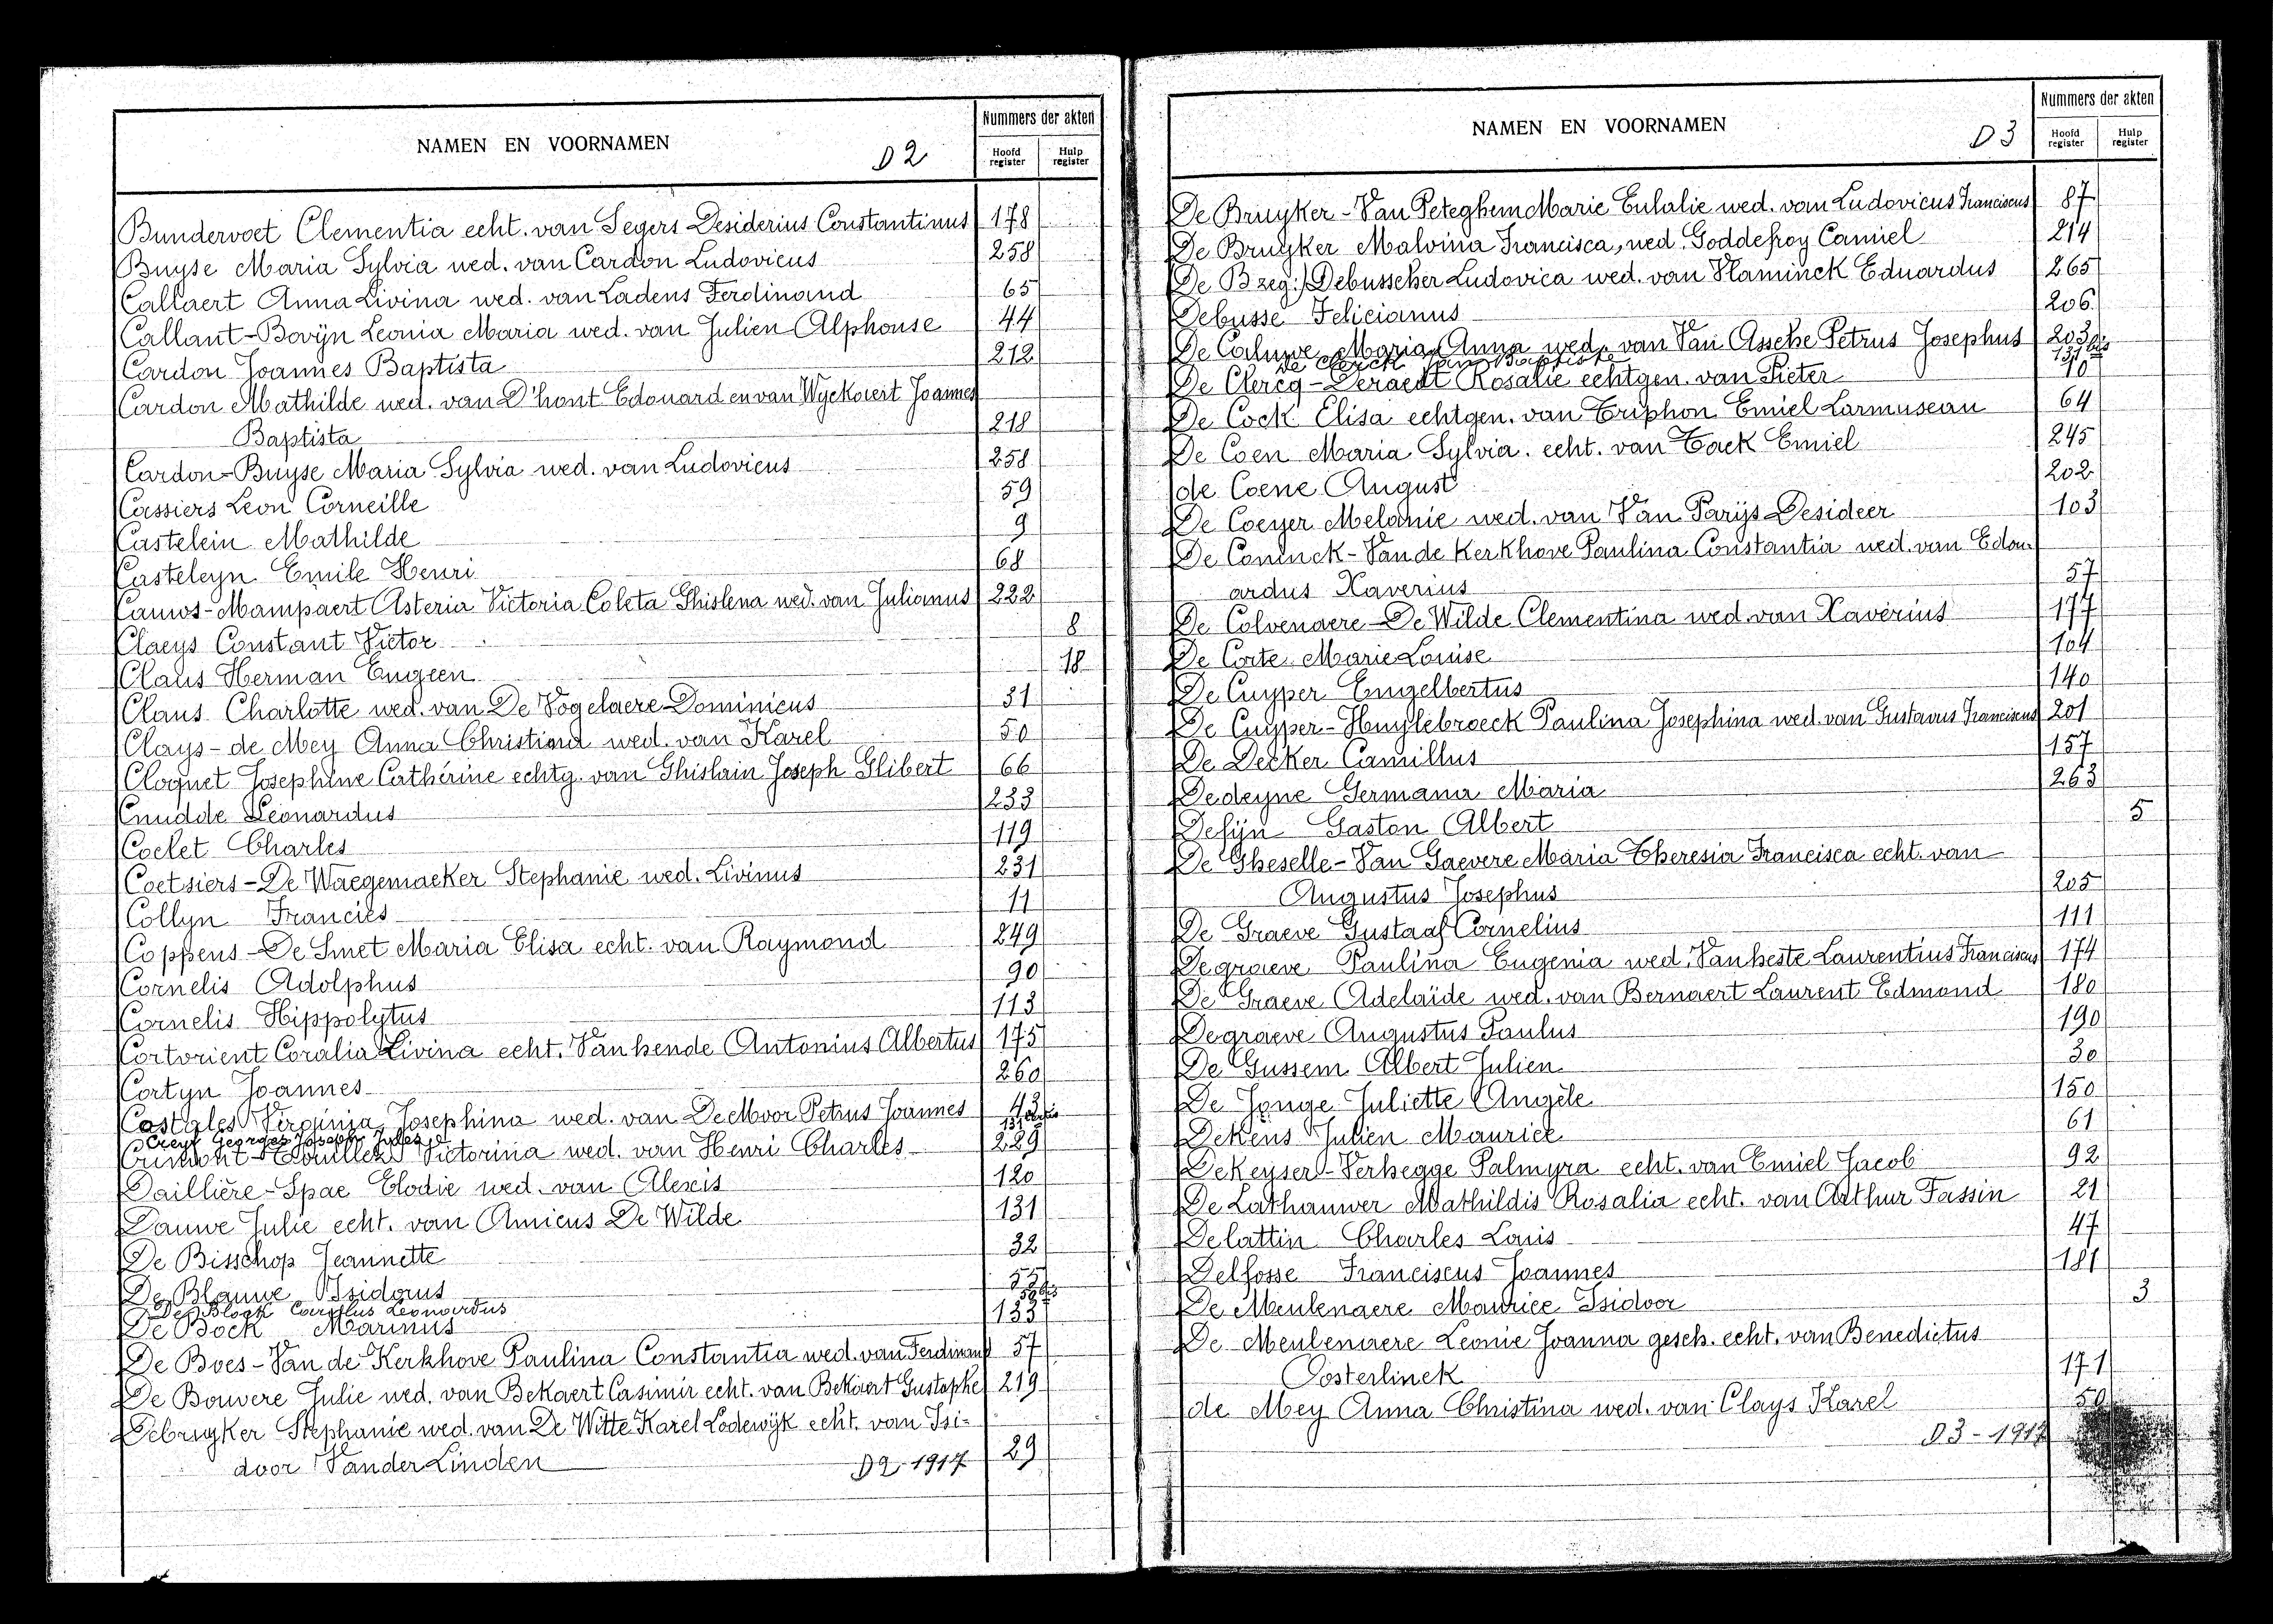 NAMEN EN VOORNAMEN
D2
Nummers der akten
Hoofd register
Hulp register
Bundervoet Clementia echt. van Segers Desiderius Constantinus 178
Buyse Maria Sylvia wed. van Cardon Ludovicus 258
Callaert Anna Livina wed. van Ladens Ferdinand 65
Callant-Bovijn Leonia Maria wed. van Julien Alphonse 44
Cardon Joannes Baptista 212
Cardon Mathilde wed. van D'hont Edouard en van Wyckaert Joannes
Baptista 218
Cardon-Buyse Maria Sylvia wed. van Ludovicus 258
Cassiers Leon Corneille 59
Castelein Mathilde 9
Casteleyn Emile Henri 68
Cauws-Mampaert Asteria Victoria Coleta Ghislena wed. van Julianus 222
Claeys Constant Victor 8
Claus Herman Eugeen 18
Claus Charlotte wed. van De Vogelaere Dominicus 31
Clays-de Mey Anna Christina wed. van Karel 50
Cloquet Josephine Cathérine echtg. van Ghislain Joseph Glibert 66
Cnudde Leonardus 233
Coelet Charles 119
Coetsiers-De Waegemaeker Stephanie wed. Livinus 231
Collyn Francies 11
Coppens-De Smet Maria Elisa echt. van Raymond 249
Cornelis Adolphus 90
Cornelis Hippolytus 113
Cortvrient Coralia Livina echt. Vanhende Antonius Albertus 175
Cortyn Joannes 260
Costales Virginia Josephina wed. van De Moor Petrus Joannes 43
Creyf Georges Joseph Jules 131
Crimont- Victorina wed. van Henri Charles 229
Daillière-Spae Elodie wed. van Alexis 120
Dauwe Julie echt. van Amicus De Wilde 131
De Bisschop Jeannette 32
De Blauwe Isidorus 55
De Block Carolus Leonardus bis
De Bock Marinus 133
De Boes-Van de Kerkhove Paulina Constantia wed. van Ferdinand 57
De Bouvere Julie wed. van Bekaert Casimir echt. van Bekaert Gustaphe 219
Debruyker Stephanie wed. van De Witte Karel Lodewijk echt. van Isi-
door VanderLinden 29
D2-1917
NAMEN EN VOORNAMEN
D3
Nummers der akten
Hoofd register
Hulp register
De Bruyker-Van Peteghem Marie Eulalie wed. van Ludovicus Franciscus 87
De Bruyker Malvina Francisca, wed. Goddefroy Camiel 214
De B zeg:) Debusscher Ludovica wed. van Vlaminck Eduardus 265
Debusse Felicianus 206
De Caluwe Maria Anna wed. van Van Assche Petrus Josephus 203
De Clerck Jan Baptiste 131 bis
De Clercq-Deraedt Rosalie echtgen. van Pieter 10
De Cock Elisa echtgen. van Triphon Emiel Larmuseau 64
De Coen Maria Sylvia. echt. van Tack Emiel 245
de Coene August 202
De Coeyer Melanie wed. van Van Parijs Desideer 103
De Coninck-Van de Kerkhove Paulina Constantia wed. van Edou-
ardus Xaverius 57
De Colvenaere-De Wilde Clementina wed. van Xavérius 177
De Corte Marie Louise 104
De Cuyper Engelbertus 140
De Cuyper-Huylebroeck Paulina Josephina wed. van Gustavus Franciscus 201
De Decker Camillus 157
Dedeyne Germana Maria 263
Defijn Gaston Albert 5
De Gheselle-Van Gaevere Maria Theresia Francisca echt. van
Augustus Josephus 205
De Graeve Gustaaf Cornelius 111
Degraeve Paulina Eugenia wed. Vanheste Laurentius Franciscus 174
De Graeve Adelaïde wed. van Bernaert Laurent Edmond 180
Degraeve Augustus Paulus 190
De Gussem Albert Julien 30
De Jonge Juliette Angèle 150
Dekens Julien Maurice 61
DeKeyser-Verhegge Palmyra echt. van Emiel Jacob 92
De Lathauwer Mathildis Rosalia echt. van Arthur Fassin 21
Delattin Charles Louis 47
Delfosse Franciscus Joannes 181
De Meulenaere Maurice Isidoor 3
De Meulenaere Leonie Joanna gesch. echt. van Benedictus
Oosterlinck 171
de Mey Anna Christina wed. van Clays Karel 50
D3-1917